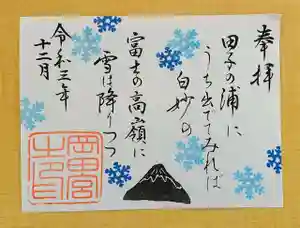 奉拝
田子の浦に
うち出でてみれば
白妙の
富士の高嶺に
雪は降りつつ
令和三年
十二月